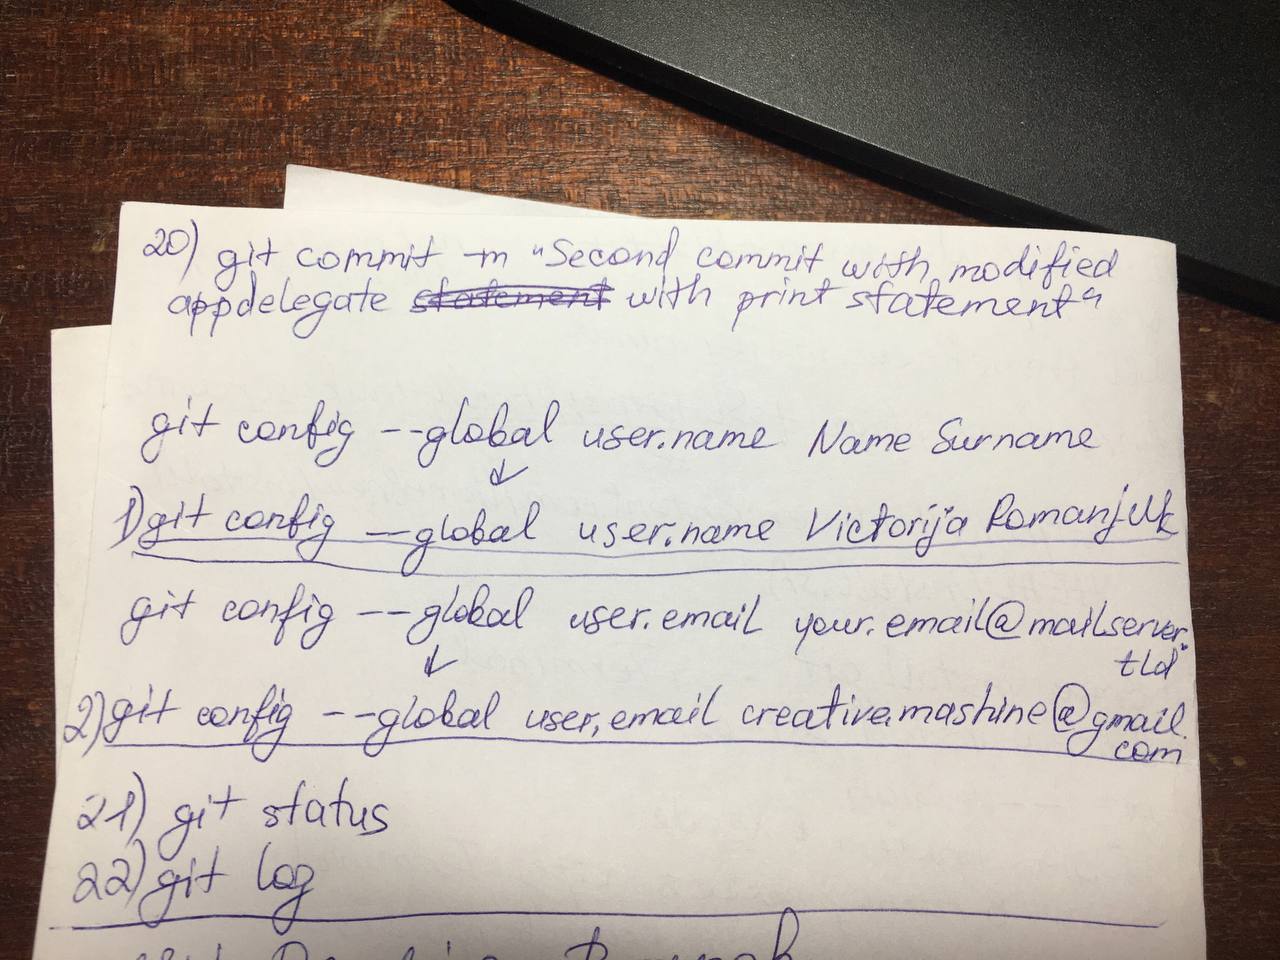 20) git commit -m "Second commit with modified
appdelegate statement with print statement"
git config --global user.name Name Surname
1) git config --global user.name Victorija Romanjuk
git config --global user.email your.email@mailserver.
tld
2) git config --global user,email creative.mashine@gmail.
com
21) git status
22) git log